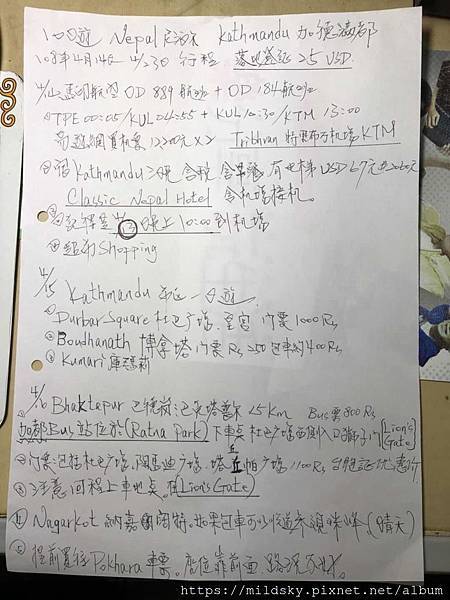 10日遊 Nepal 尼泊尔 Kathmandu 加德滿都
108年4月14日 4/23日 行程 落地簽証 25 USD.
4/14 馬印航空 OD 889 航班 + OD 184 航班
① TPE 00:05/KUL 04:55 + KUL 10:30/KTM 13:00
易遊網買机票 12200元×2 Tribhvan 特里布万机場 KTM
② 宿 Kathmandu 三晚 含税 含早餐 有电梯 USD 67元 2060元
Classic Nepal Hotel 含机場接机.
③ 4/13 晚上 10:00 到机場
④ 超市 Shopping
4/15 Kathmandu 一日遊.
① Durbar Square 杜巴广場. 皇宮 门票 1000 Rs
② Boudhanath 博拿塔 门票 Rs 250 包車約 400 Rs
③ Kumari 庫瑪莉
4/16 Bhaktapur 巴德岗 25 Km Bus票 800 Rs
① 加都 Bus 站位於 (Ratna Park) 下車桌 杜巴广場西側入口獅子门 [Lion's Gate]
② 门票包括杜巴广場. 陶馬迪广場. 塔丘帕广場 1100 Rs 台胞証优惠
③ 注意 回程上車地桌. 在 (Lion's Gate)
④ Nagarkot 納嘉闊特. 如果包車可以順道參觀 (晴天)
⑤ 提前買往 Pokhara 車票. 座位靠前面
https://mildsky.pixnet.net/album